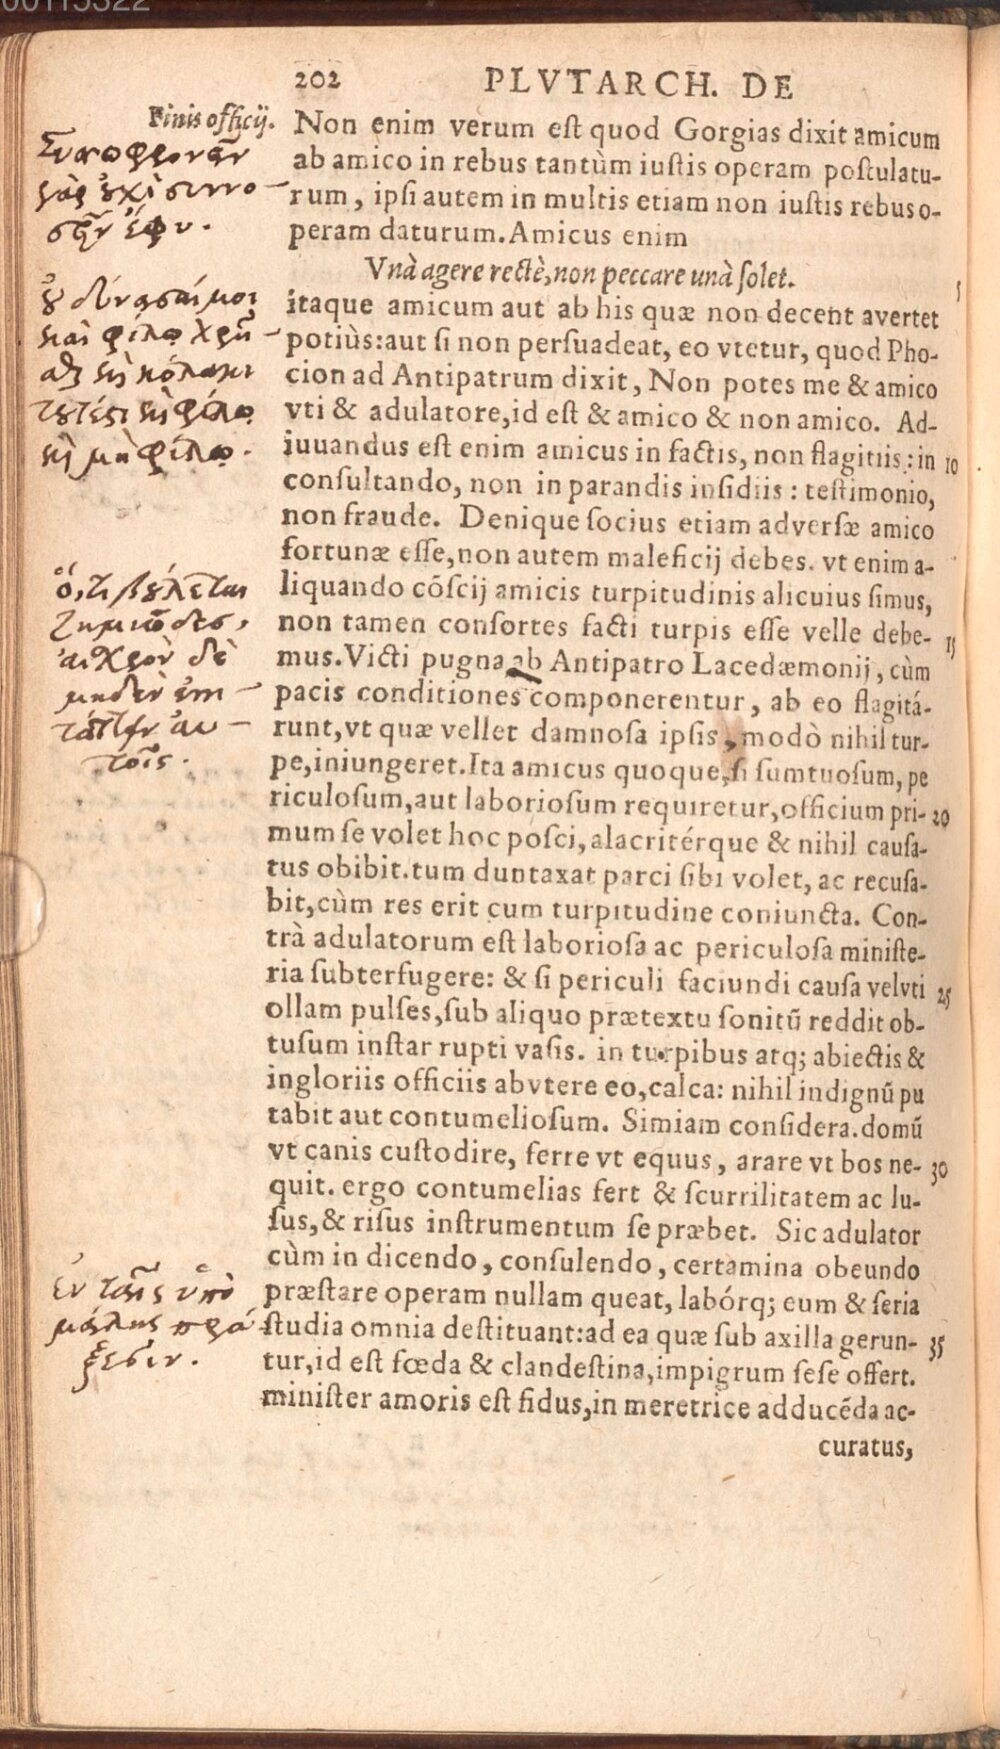 202 PLVTARCH. DE
Finis officij.
Non enim verum eſt quod Gorgias dixit amicum
ab amico in rebus tantùm iuſtis operam poſtulatu-
rum, ipſi autem in multis etiam non iuſtis rebus o-
peram daturum. Amicus enim
Vnà agere rectè, non peccare unà ſolet.
itaque amicum aut ab his quæ non decent avertet
potiùs: aut ſi non perſuadeat, eo vtetur, quod Pho-
cion ad Antipatrum dixit, Non potes me & amico
vti & adulatore, id eſt & amico & non amico. Ad-
iuuandus eſt enim amicus in factis, non flagitiis: in
conſultando, non in parandis inſidiis: teſtimonio,
non fraude. Denique ſocius etiam adverſæ amico
fortunæ eſſe, non autem maleficij debes. vt enim a-
liquando cõſcij amicis turpitudinis alicuius ſimus,
non tamen conſortes facti turpis eſſe velle debe-
mus. Victi pugna ab Antipatro Lacedæmonij, cùm
pacis conditiones componerentur, ab eo flagitá-
runt, vt quæ vellet damnoſa ipſis, modò nihil tur-
pe, iniungeret. Ita amicus quoque, ſi ſumtuoſum, pe
riculoſum, aut laborioſum requiretur, officium pri-
mum ſe volet hoc poſci, alacritérque & nihil cauſa-
tus obibit. tum duntaxat parci ſibi volet, ac recuſa-
bit, cùm res erit cum turpitudine coniuncta. Con-
trà adulatorum eſt laborioſa ac periculoſa miniſte-
ria ſubterfugere: & ſi periculi faciundi cauſa velvti
ollam pulſes, ſub aliquo prætextu ſonitũ reddit ob-
tuſum inſtar rupti vaſis. in turpibus atq; abiectis &
ingloriis officiis abvtere eo, calca: nihil indignũ pu
tabit aut contumelioſum. Simiam conſidera. domũ
vt canis cuſtodire, ferre vt equus, arare vt bos ne-
quit. ergo contumelias fert & ſcurrilitatem ac lu-
ſus, & riſus inſtrumentum ſe præbet. Sic adulator
cùm in dicendo, conſulendo, certamina obeundo
præſtare operam nullam queat, labórq; eum & ſeria
ſtudia omnia deſtituant: ad ea quæ ſub axilla gerun-
tur, id eſt fœda & clandeſtina, impigrum ſeſe offert.
miniſter amoris eſt fidus, in meretrice adducẽda ac-
curatus,
5
10
15
20
25
30
35
Συσσωφρονεῖν
γὰρ οὐχὶ συννο-
σεῖν ἔφυ.
οὐ δύνασαί μοι
καὶ φίλῳ χρῆ-
σθαι καὶ κόλακι
τουτέστι καὶ φίλῳ
καὶ μὴ φίλῳ.
ὅ,τι βούλεται
ζημιῶδες,
αἰσχρὸν δὲ
μηδὲν ἐπι-
τάττειν αὐ-
τοῖς.
ἐν ταῖς ὑπὸ
μάλης πρά
ξεσιν.